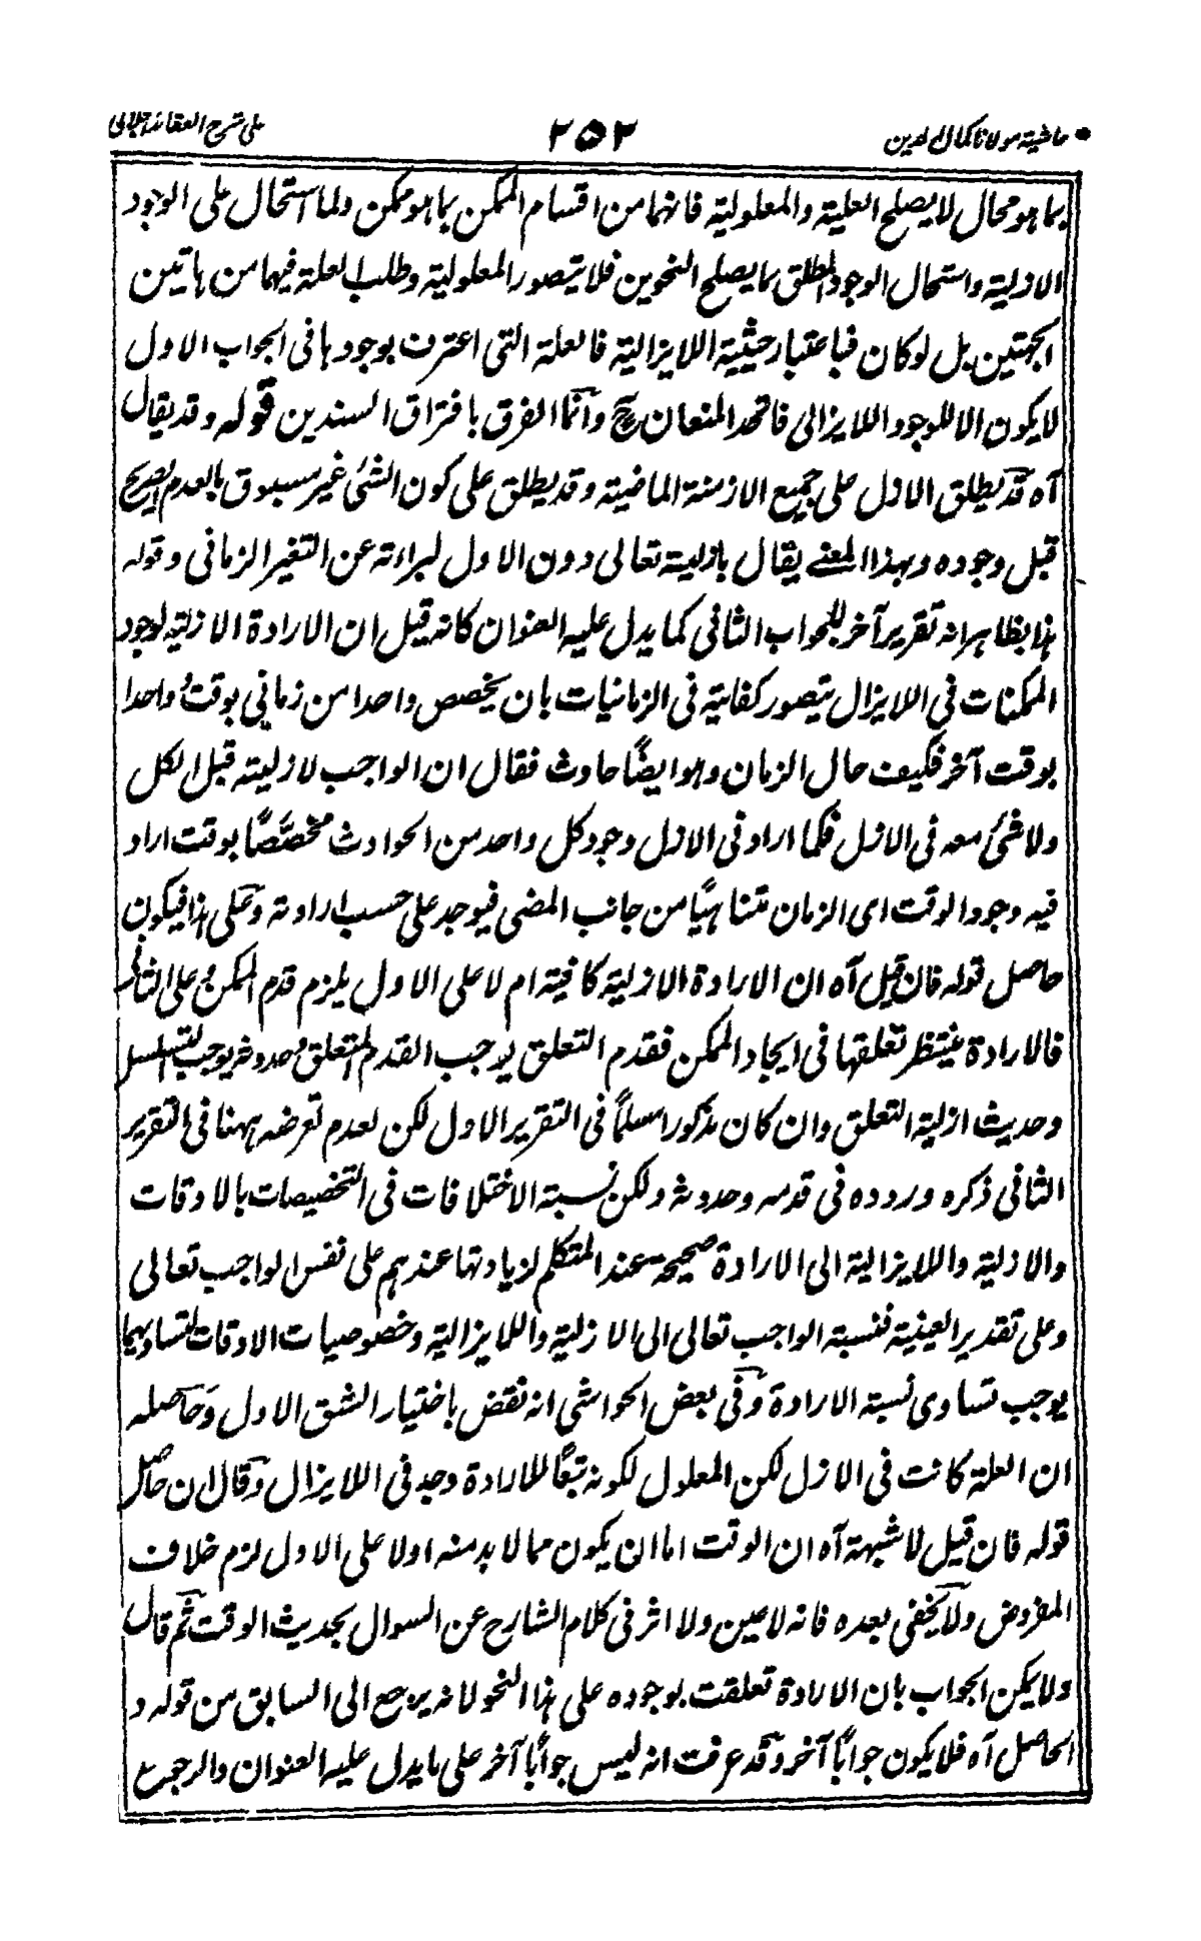 حاشية مولانا كمال الدين
٢٥٢
على شرح العقائد الجلالي
بما هو محال لا يصلح العلية والمعلولية فانهما من اقسام الممكن بما هو ممكن ولما استحال على الوجود
الازلية واستحال الوجود المطلق بما يصلح النحوين فلا يتصور المعلولية وطلب العلة فيهما من هاتين
الجهتين بل لو كان فباعتبار حيثية اللايزالية فالعلة التى اعترف بوجودها فى الجواب الاول
لا يكون الا للوجود اللايزالى فاتحد المنعان ح وانما الفرق بافتراق السندين قوله وقد يقال
آه قد يطلق الازل على جميع الازمنة الماضية وقد يطلق على كون الشئ غير مسبوق بالعدم الصريح
قبل وجوده وبهذا المعنے يقال بازلية تعالى دون الاول لبراءته عن التغير الزمانى وقوله
هذا بظاهرانه تقرير آخر للجواب الثانى كما يدل عليه العنوان كانه قيل ان الارادة الازلية لوجود
الممكنات فى اللايزال يتصور كفاية فى الزمانيات بان يخصص واحدا من زمانى بوقت واحدا
بوقت آخر فكيف حال الزمان وهو ايضًا حادث فقال ان الواجب لازليته قبل الكل
ولا شئ معه فى الازل فكما اراد فى الازل وجود كل واحد من الحوادث مخصَّصًا بوقت اراد
فيه وجود الوقت اى الزمان متناهيًا من جانب المضى فيوجد على حسب ارادته وعلى هذا فيكون
حاصل قوله فان قيل آه ان الارادة الازلية كافية ام لا على الاول يلزم قدم الممكن وعلى الثانى
فالارادة ينتظر تعلقها فى ايجاد الممكن فقدم التعلق يوجب القدم المتعلق وحدوثه يوجب التسلسل
وحديث ازلية التعلق وان كان مذكورا مسلمًا فى التقرير الاول لكن لعدم تعرضه ههنا فى التقرير
الثانى ذكره وردده فى قدمه وحدوثه ولكن نسبة الاختلافات فى التخصيصات بالاوقات
والازلية واللايزالية الى الارادة صحيحة عند المتكلم لزيادتها عندهم على نفس الواجب تعالى
وعلى تقدير العينية فنسبة الواجب تعالى الى الازلية واللايزالية وخصوصيات الاوقات لتساويهما
يوجب تساوى نسبة الارادة وفى بعض الحواشى انه نقض باختيار الشق الاول وحاصله
ان العلة كانت فى الازل لكن المعلول لكونه تبعًا للارادة وجد فى اللايزال وقال ان حاصل
قوله فان قيل لا شبهة آه ان الوقت اما ان يكون مما لا بد منه اولا على الاول لزم خلاف
المفروض ولا يخفى بعده فانه لا عين ولا اثر فى كلام الشارح عن السوال بحديث الوقت ثم قال
ولا يمكن الجواب بان الارادة تعلقت بوجوده على هذا النحو لانه يرجع الى السابق من قوله و
الحاصل آه فلا يكون جوابًا آخر وقد عرفت انه ليس جوابًا آخر على ما يدل عليه العنوان والرجوع